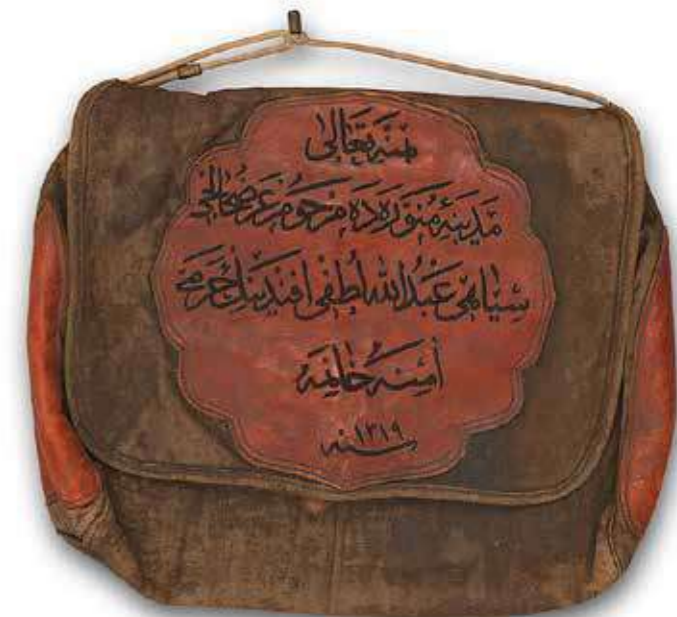 بمنه تعالى
مدينهٔ منوره ده مرحوم عرضحالجى
سيامى عبدالله لطفى افندينك حرمى
امنه خانمه
سنه ١٣١٩